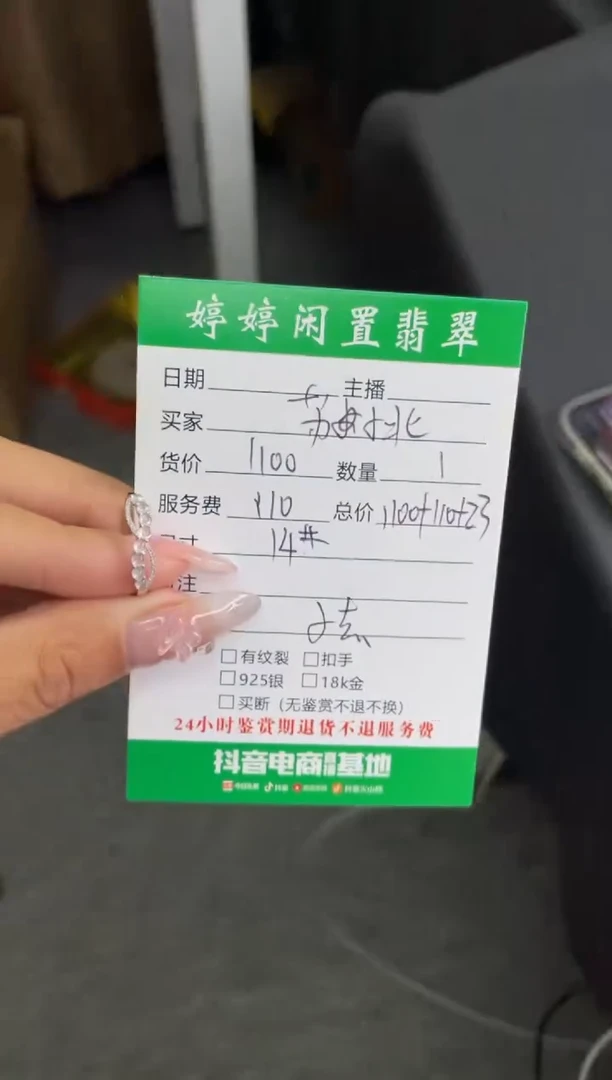 婷婷闲置翡翠
日期 主播
买家 苏小北
货价 1100 数量 1
服务费 110 总价 1100+110+23
尺寸 14#
注
□有纹裂 □扣手
□925银 □18k金
□买断（无鉴赏不退不换）
24小时鉴赏期退货不退服务费
抖音电商直播基地